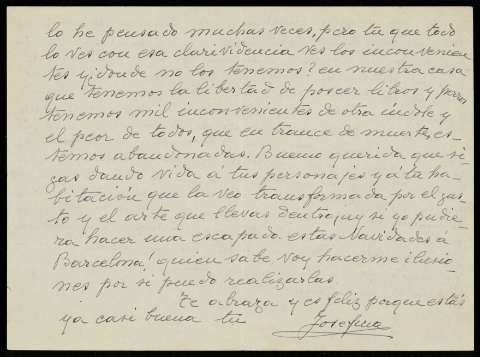 lo he pensado muchas veces, pero tu que todo
lo ves con esa clarividencia ves los inconvenien
tes y ¿donde no los tenemos? en nuestra casa
que tenemos la libertad de poseer libros y perros
tenemos mil inconvenientes de otra índole y
el peor de todos, que en trance de muerte, es-
temos abandonadas. Bueno querida que si-
gas dando vida á tus personajes y á la ha-
bitación que la veo transformada por el gus-
to y el arte que llevas dentro, uy si yo pudie-
ra hacer una escapada estas Navidades á
Barcelona! quien sabe voy hacerme ilusio-
nes por si puedo realizarlas.
Te abraza y es feliz porque estás
ya casi buena tu Josefina